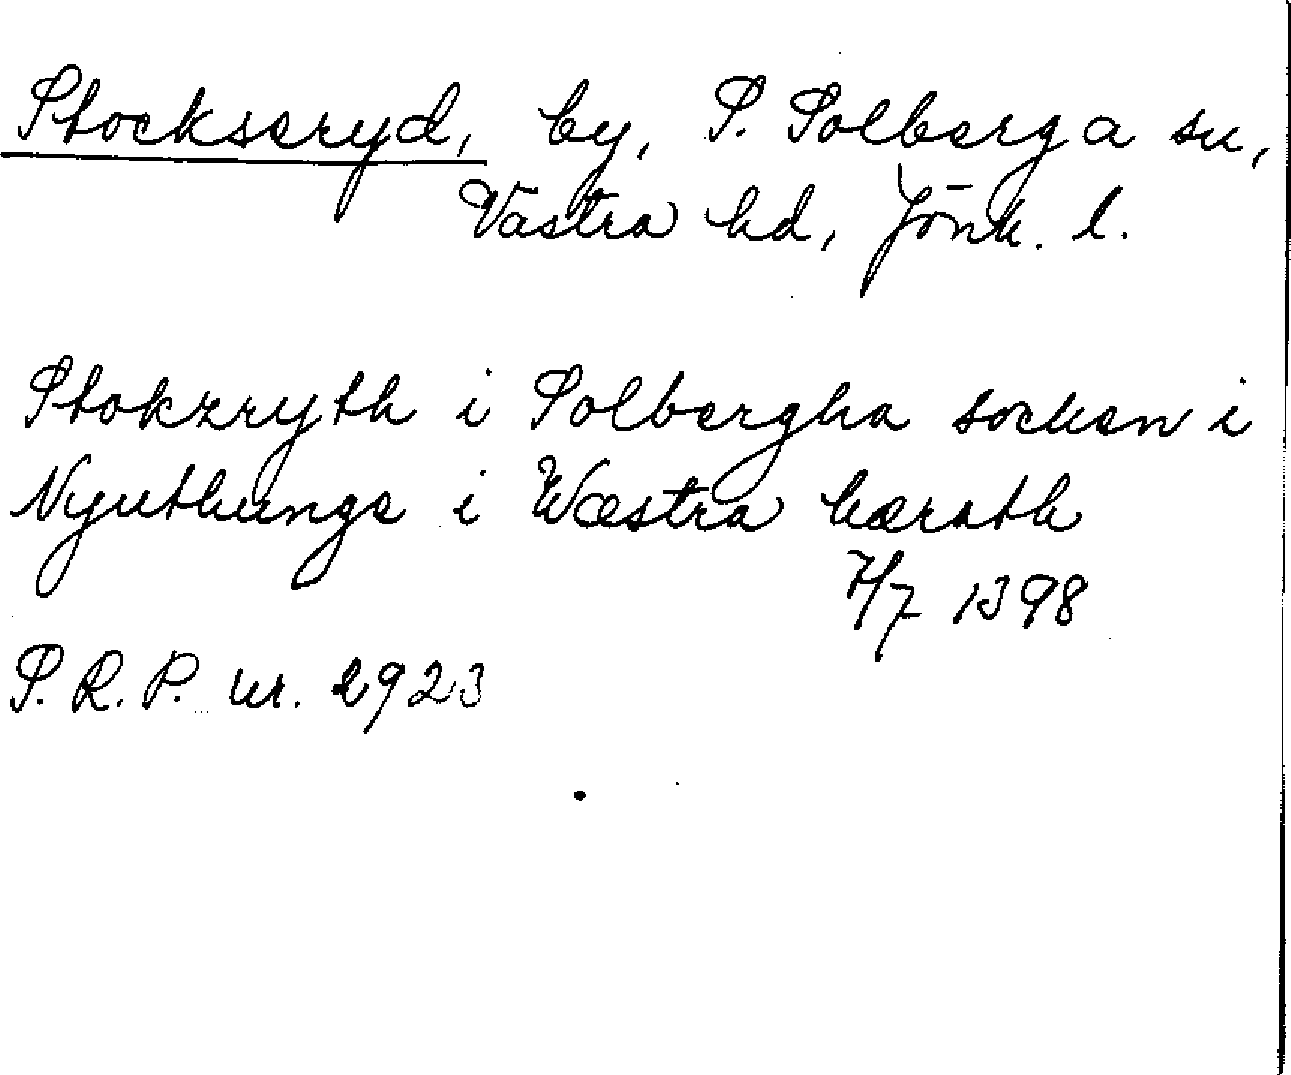 Stockseryd, by, S. Solberga sn,
Västra hd, Jönk. l.
Stokzryth i Solbergha socken i
Nyuthungs i Wæstra hærath
7/7 1398
S.R.P. nr. 2923